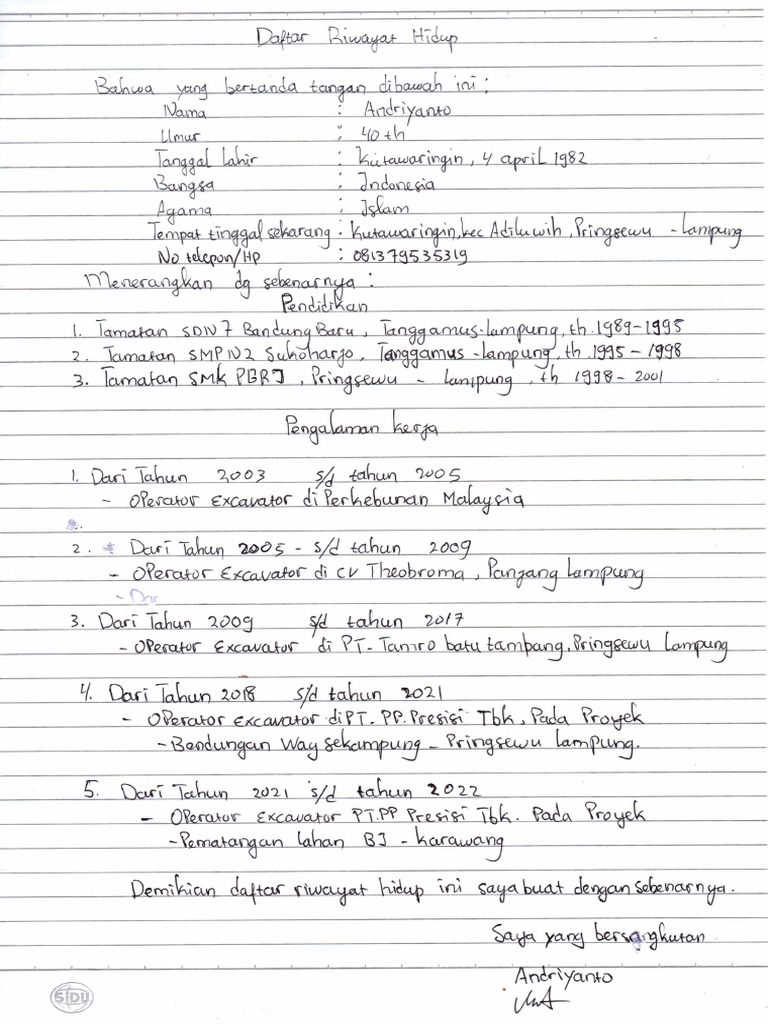 Daftar Riwayat Hidup
Bahwa yang bertanda tangan dibawah ini :
Nama : Andriyanto
Umur : 40 th
Tanggal lahir : Kutawaringin, 4 april 1982
Bangsa : Indonesia
Agama : Islam
Tempat tinggal sekarang : Kutawaringin, kec Adiluwih, Pringsewu - Lampung
No telepon/HP : 081379535319
Menerangkan dg sebenarnya :
Pendidikan
1. Tamatan SDN 7 Bandung Baru, Tanggamus-lampung, th.1989-1995
2. Tamatan SMPN2 Sukoharjo, Tanggamus - lampung, th.1995 - 1998
3. Tamatan SMK PGRI, Pringsewu - lampung, th 1998 - 2001
Pengalaman kerja
1. Dari Tahun 2003 s/d tahun 2005
- Operator Excavator di Perkebunan Malaysia
2. Dari Tahun 2005 - s/d tahun 2009
- Operator Excavator di CV Theobroma, Panjang Lampung
3. Dari Tahun 2009 s/d tahun 2017
- Operator Excavator di PT- batu tambang, Pringsewu Lampung
4. Dari Tahun 2018 s/d tahun 2021
- Operator Excavator di PT. PP. Presisi Tbk, Pada Proyek
- Bendungan Way sekampung - Pringsewu lampung.
5. Dari Tahun 2021 s/d tahun 2022
- Operator Excavator PT.PP Presisi Tbk. Pada Proyek
- Pematangan lahan BJ - karawang
Demikian daftar riwayat hidup ini saya buat dengan sebenarnya.
Saya yang bersangkutan
Andriyanto
SIDU